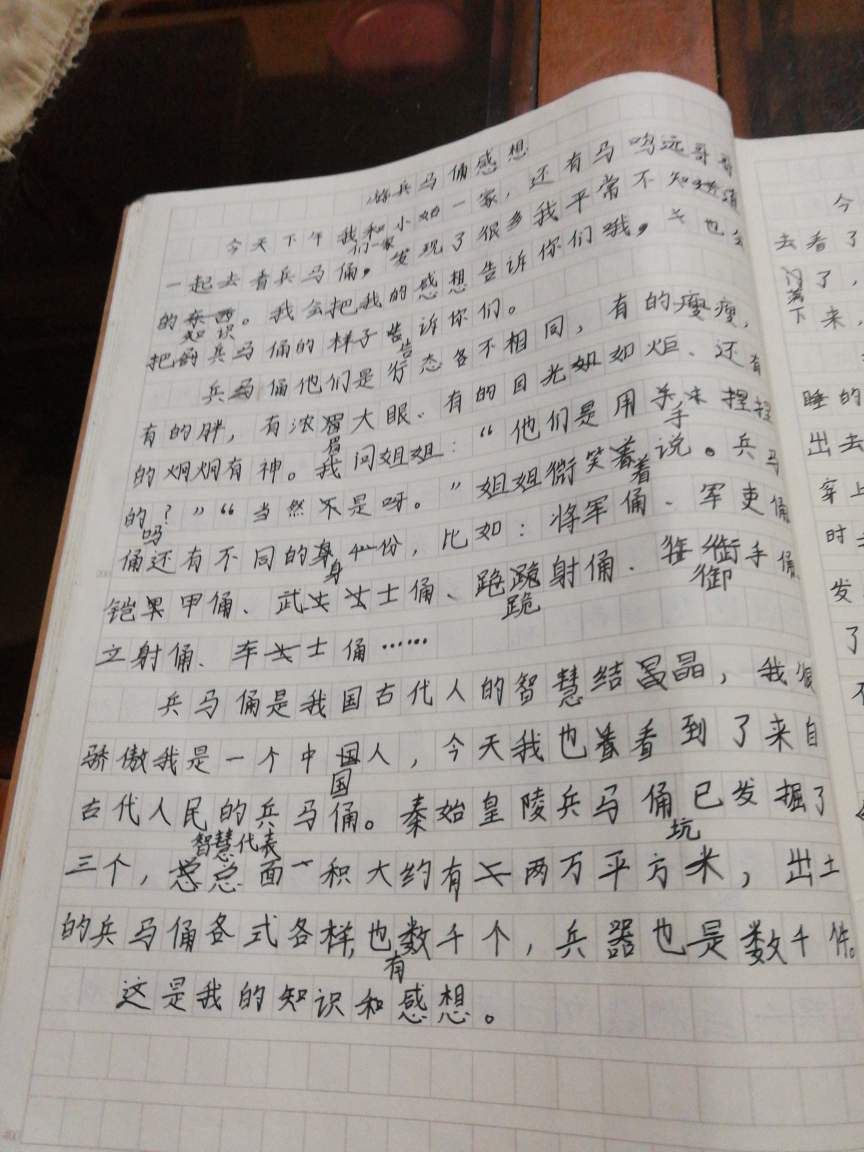 兵马俑感想
今天下午我们一家和小姑一家，还有马鸣远哥哥
一起去看兵马俑，发现了很多我平常不知道
的知识。我会把我的感想告诉你们哦，也会
把兵马俑的样子告诉你们。
兵马俑他们是形态各不相同，有的瘦瘦，
有的胖，有浓眉大眼、有的目光如炬、还有
的炯炯有神。我问姐姐：“他们是用手捏
的吗？”“当然不是呀。”姐姐微笑着说。兵马
俑还有不同的身份，比如：将军俑、军吏俑
铠甲俑、武士俑、跪射俑、御手俑
立射俑、车士俑……
兵马俑是我国古代人的智慧结晶，我很
骄傲我是一个中国人，今天我也看到了来自
古代人民的智慧代表兵马俑。秦始皇陵兵马俑坑已发掘了
三个，总面积大约有两万平方米，出土
的兵马俑各式各样，也有数千个，兵器也是数千件。
这是我的知识和感想。
今
去看了
了，
下来，
睡的
出去
穿上
时
发
了
不